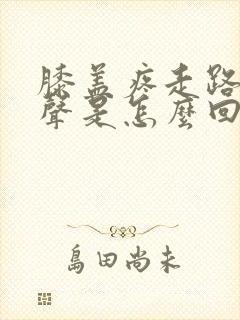 膝盖疼走路
聲是怎麼回
島田尚未